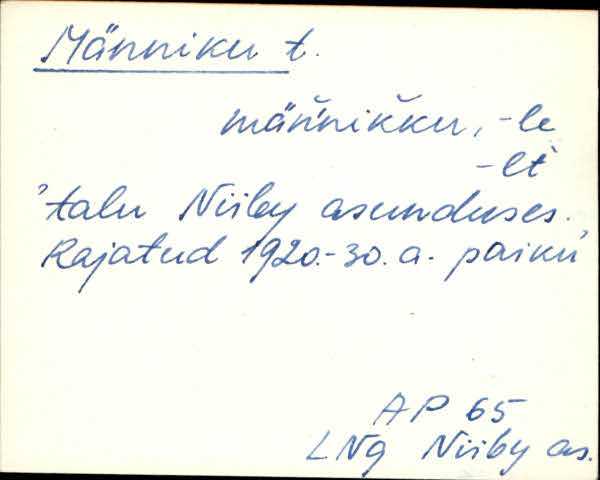 Männiku t.
männ̆ik̆ku, -le
-lt
'talu Niiby asunduses.
Rajatud 1920.-30. a. paiku'
AP 65
LNg Niiby as.